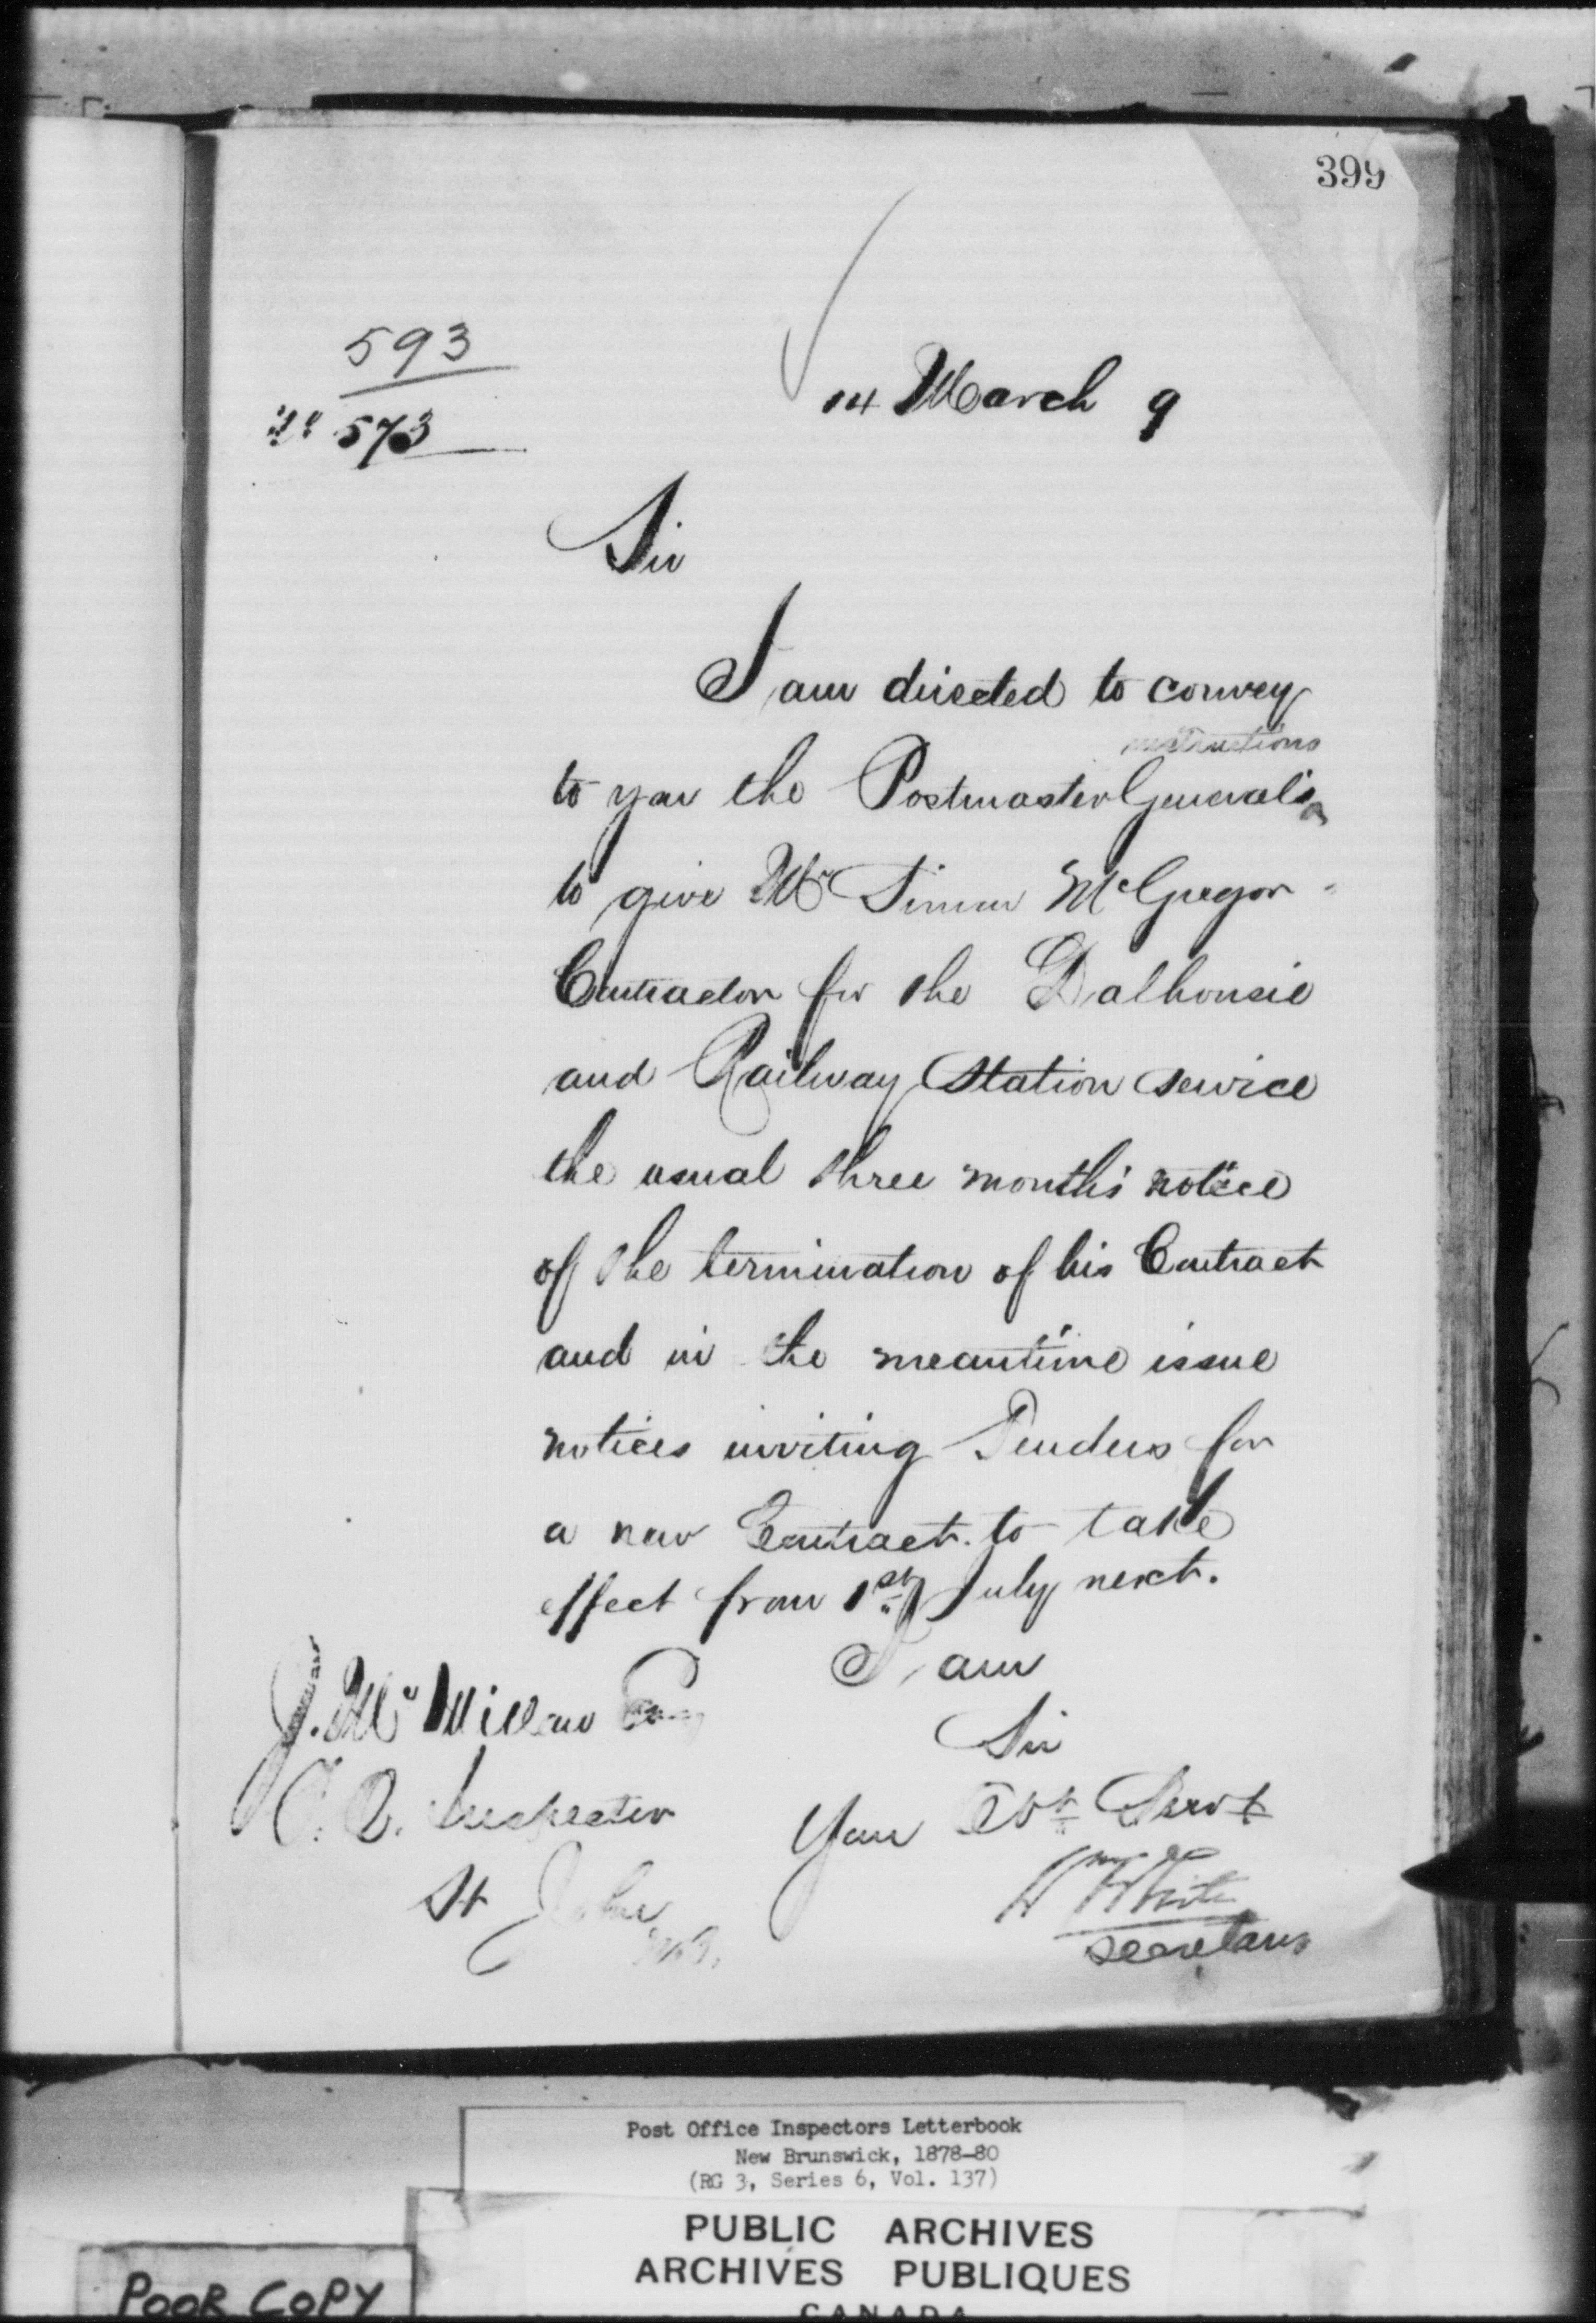 399
593
No 573
14 March 9
Sir
I am directed to convey
instructions
to you the Postmaster General's
to give Mr Simon McGregor
Contractor for the Dalhousie
and Railway Station service
the usual three months' notice
of the termination of his Contract
and in the meantime issue
notices inviting Tenders for
a new Contract to take
effect from 1st July next.
I am
Sir
Your Obt Servt
Wm White
Secretary
J. McMillan Esq
P. O. Inspector
St John
N.B.
Post Office Inspectors Letterbook
New Brunswick, 1878-80
(RG 3, Series 6, Vol. 137)
PUBLIC ARCHIVES
ARCHIVES PUBLIQUES
CANADA
POOR COPY